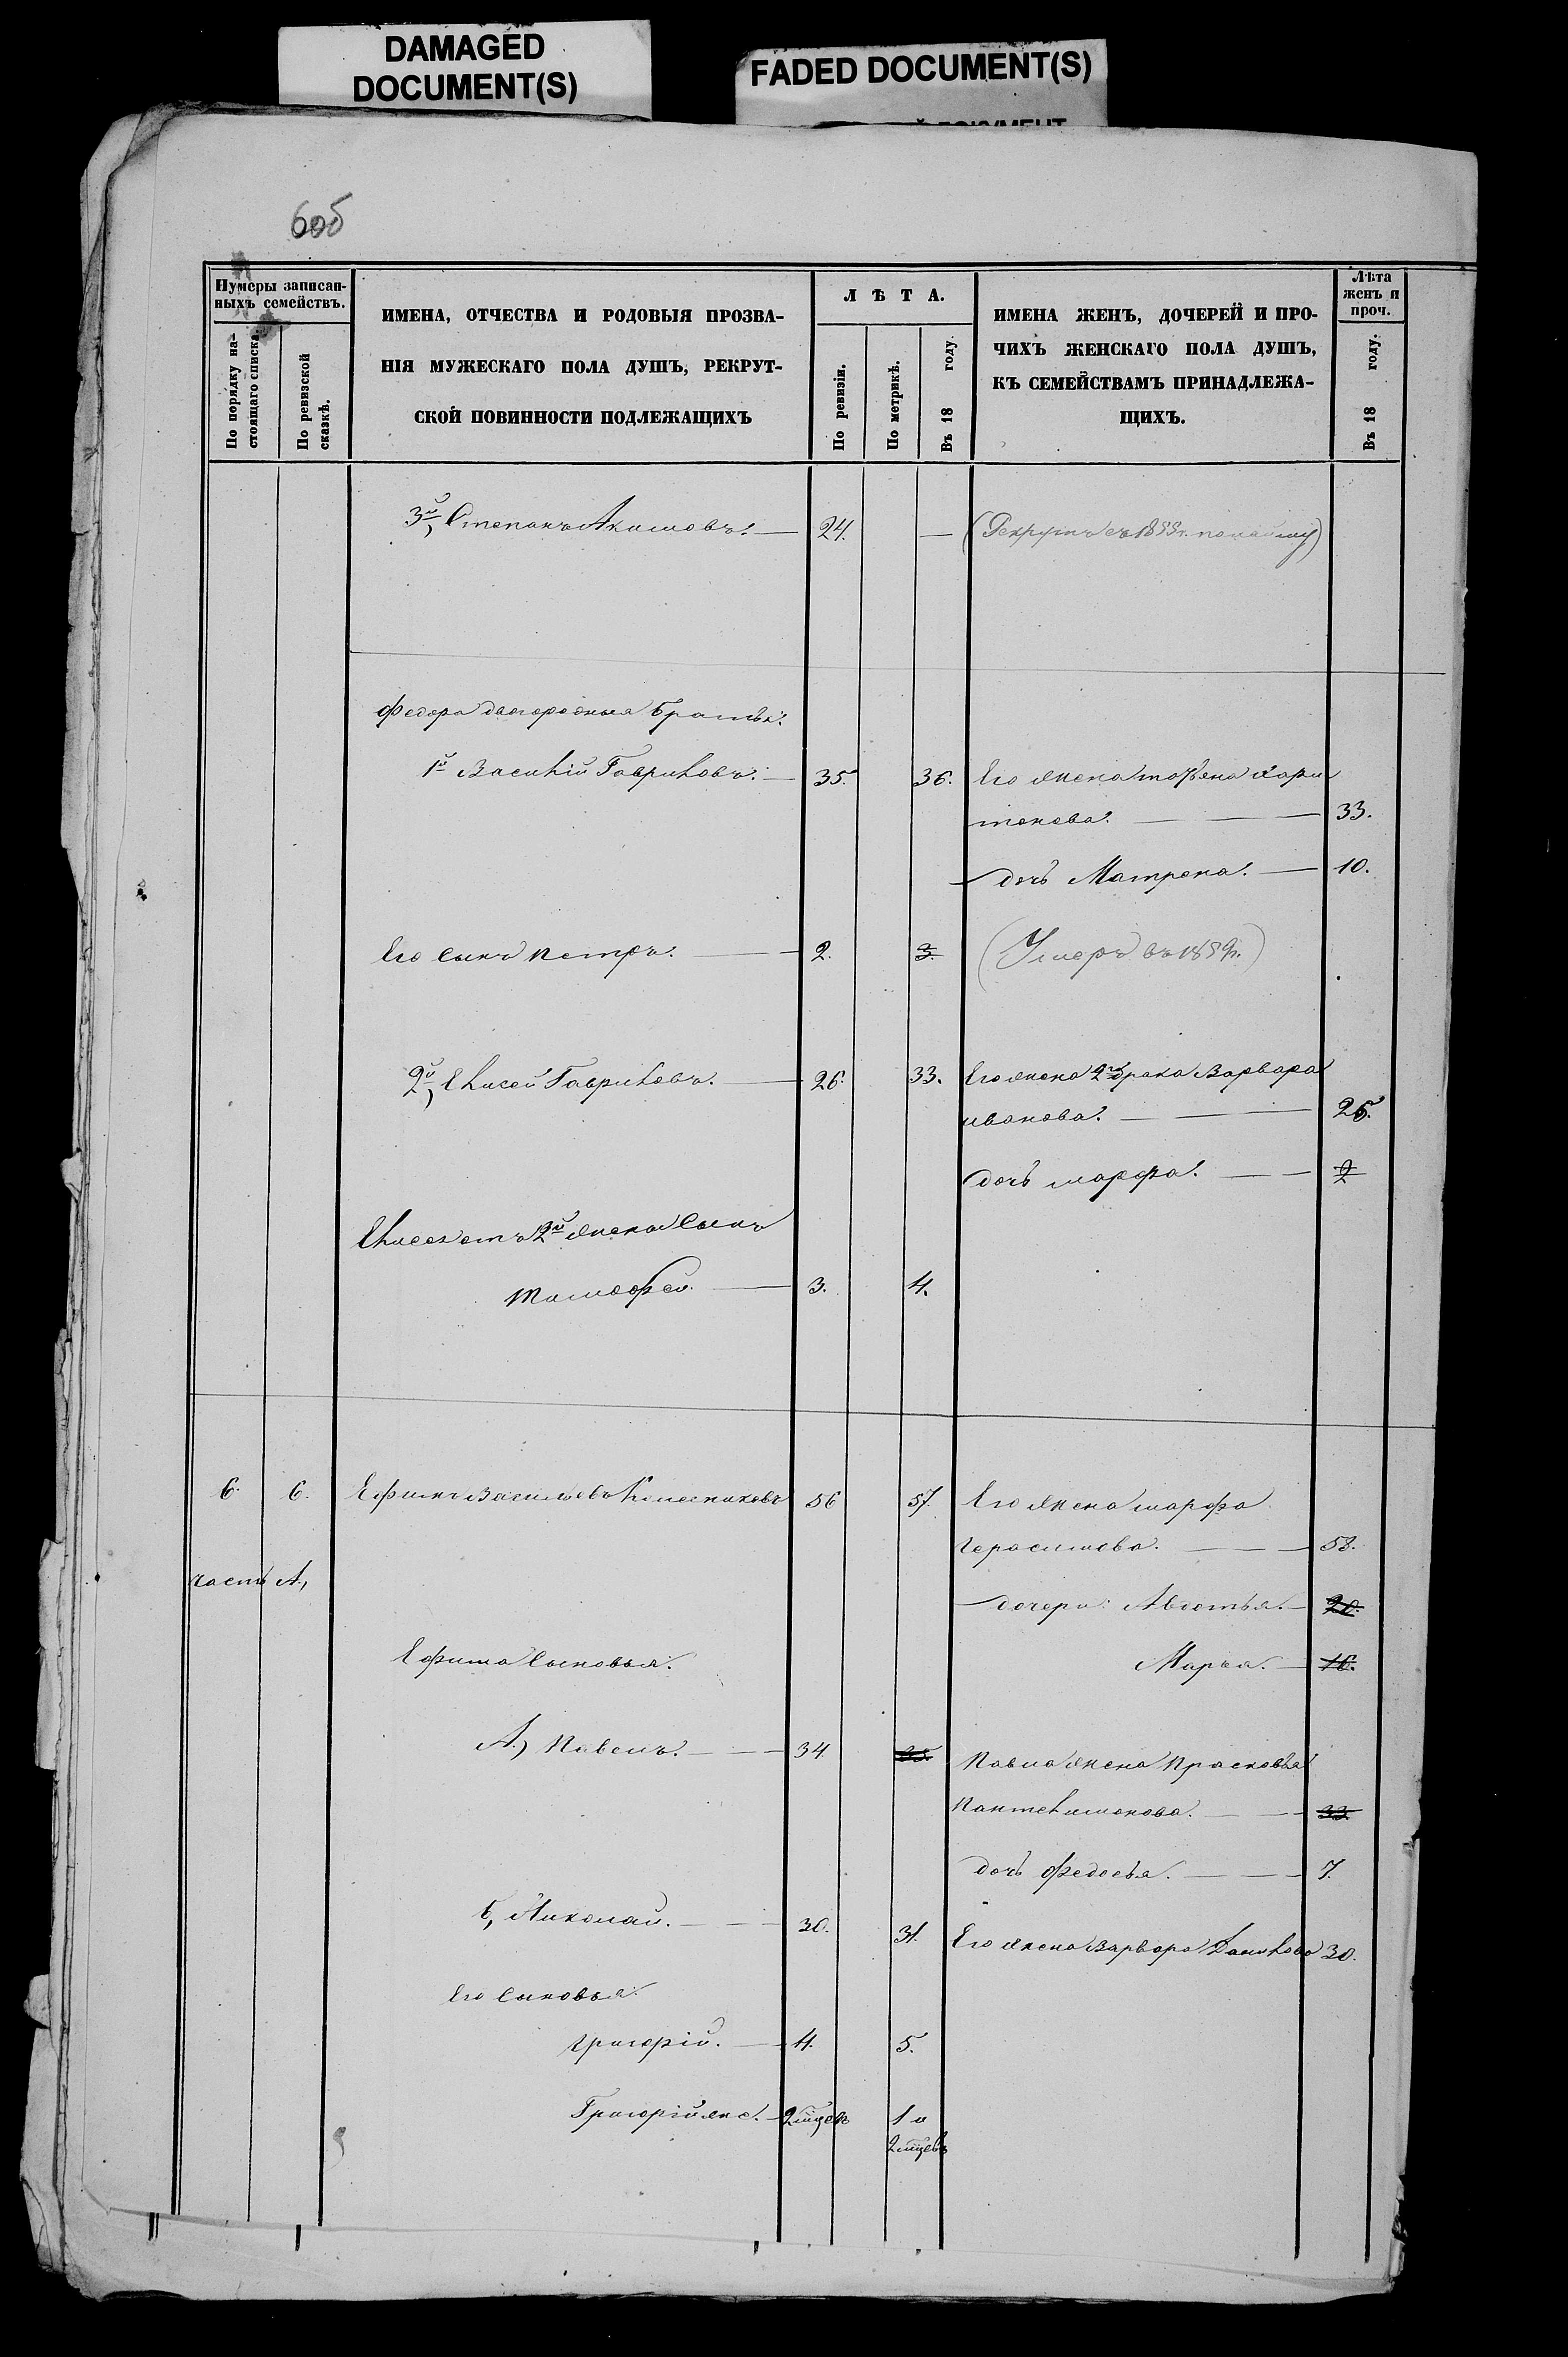 DAMAGED
DOCUMENT(S)
FADED DOCUMENT(S)
6об
Нумеры записан-
ныхъ семействъ.
По порядку на-
стоящаго списка.
По ревизской
сказкѣ.
ИМЕНА, ОТЧЕСТВА И РОДОВЫЯ ПРОЗВА-
НІЯ МУЖЕСКАГО ПОЛА ДУШЪ, РЕКРУТ-
СКОЙ ПОВИННОСТИ ПОДЛЕЖАЩИХЪ
Л Ѣ Т А.
По ревизіи.
По метрикѣ.
Въ 18 году.
ИМЕНА ЖЕНЪ, ДОЧЕРЕЙ И ПРО-
ЧИХЪ ЖЕНСКАГО ПОЛА ДУШЪ,
КЪ СЕМЕЙСТВАМЪ ПРИНАДЛЕЖА-
ЩИХЪ.
Лѣта
женъ и
проч.
Въ 18 году.
3й, Степанъ Акимовъ. — 24. — (Рекрутъ съ 1855г. по найму)
Федора двоюродныя братья:
1й Василій Гавриловъ. — 35. 36. Его жена татьяна Хари
тонова. — 33.
дочь Матрена. — 10.
Его сынъ петръ. — 2. 3. (Умеръ въ 1859г.)
2й, Елисей Гавриловъ. — 26. 33. Его жена 2го брака Варвара
иванова. — 25.
дочь марфа. — 2
Елисея отъ 2й жены сынъ
тимофей. — 3. 4.
6. 6. Ефимъ Васильевъ Колесниковъ 56 57. Его жена марфа
герасимова. — 58.
часть А,
дочери: Авдотья. — 20.
Ефима сыновья:
Марья. — 16.
А, павелъ. — 34 35. Павла жена прасковья
пантелимонова. — 33.
дочь федосья. — 7.
Б, Николай. — 30. 31. Его жена Варвара Данилова 30.
Его сыновья:
григорій. — 4. 5.
Григорій же. — 2 мцевъ 1 и
2 мцевъ